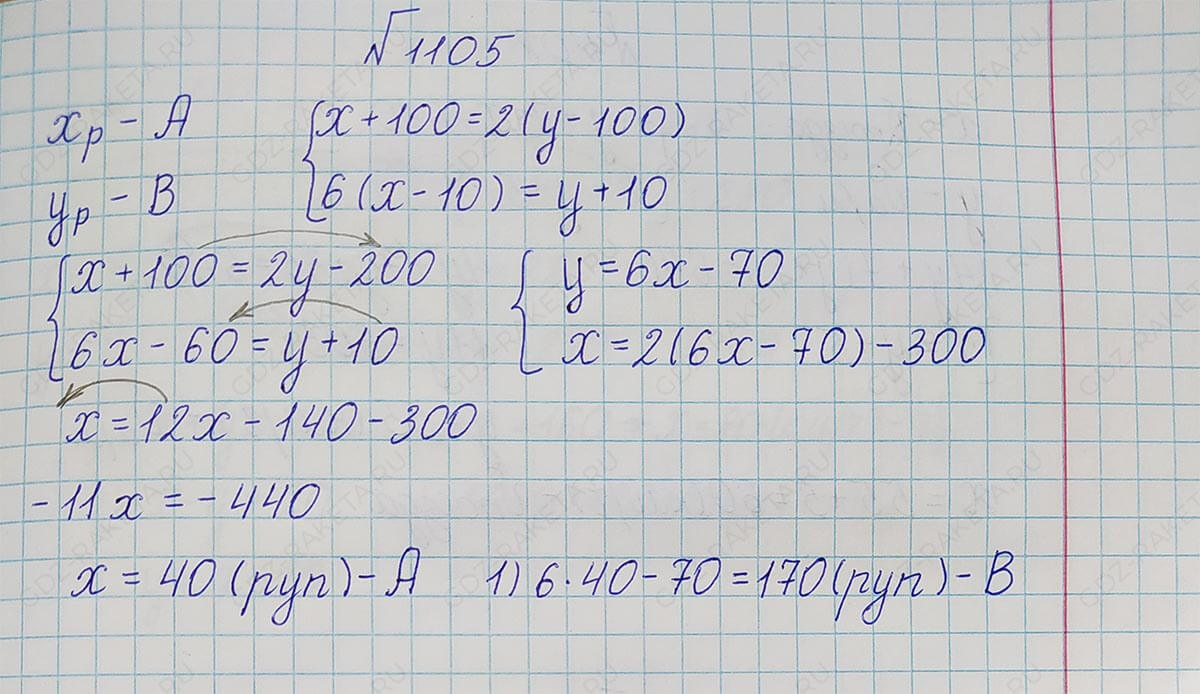 √1105
xр - A { x + 100 = 2(y - 100)
yр - B { 6(x - 10) = y + 10
{ x + 100 = 2y - 200 { y = 6x - 70
{ 6x - 60 = y + 10 { x = 2(6x - 70) - 300
x = 12x - 140 - 300
-11x = -440
x = 40 (руп) - A 1) 6·40 - 70 = 170 (руп) - B
GDZ-RAKETA.RU